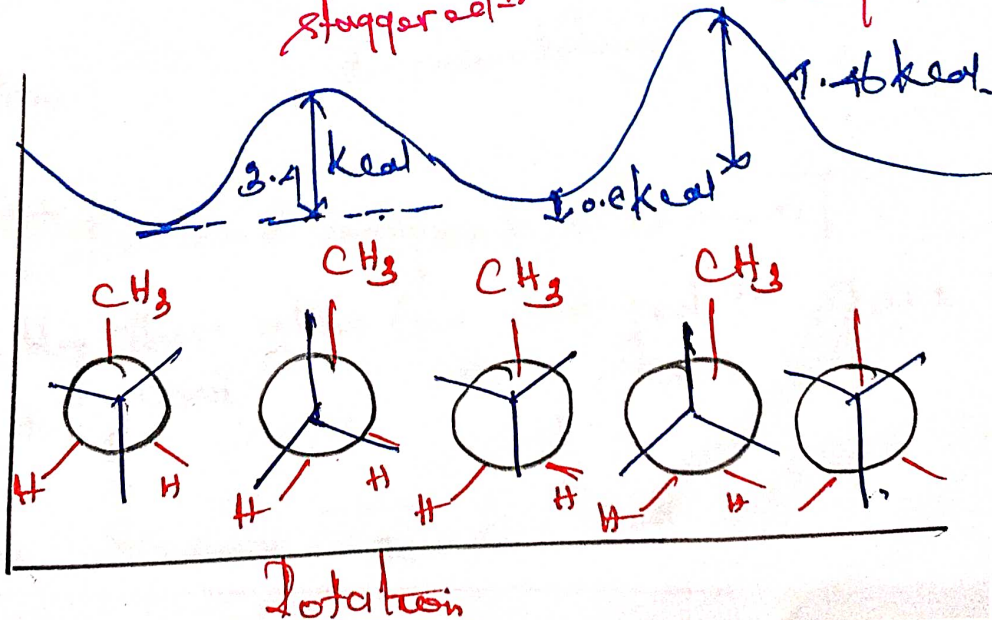 staggered
3.4 kcal
0.8 kcal
CH3
CH3
CH3
CH3
H
H
H
H
H
H
H
H
Rotation